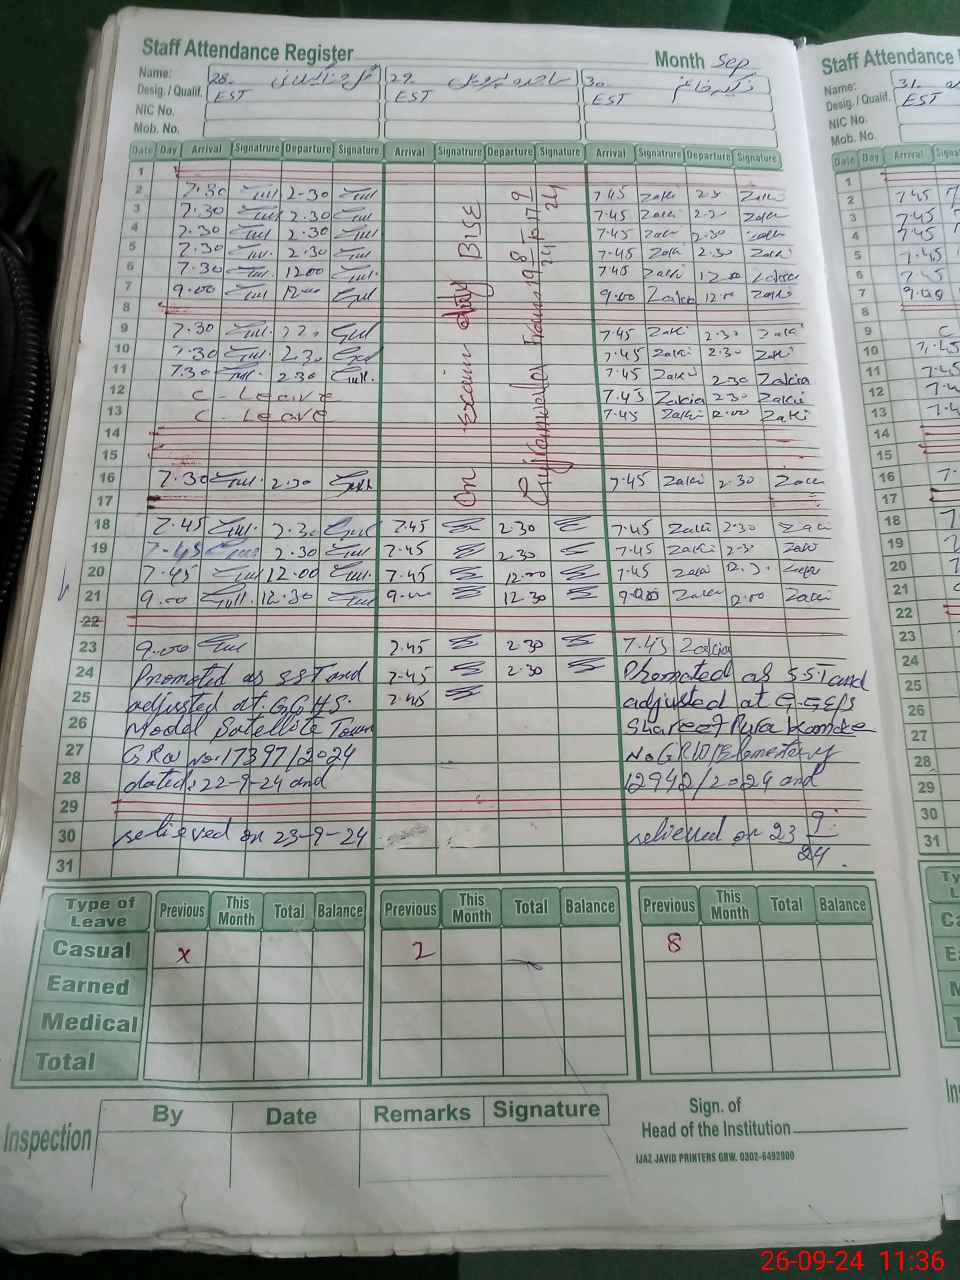 Staff Attendance Register
Month Sep
Name: 28. 29 30
Desig. / Qualif. EST EST EST
NIC No.
Mob. No.
Date Day Arrival Signatrure Departure Signature Arrival Signatrure Departure Signature Arrival Signatrure Departure Signature
1
2 7.30 Gul 2-30 Gul 7.45 Zaki 2.30 Zaki
3 7.30 Gul 2.30 Gul 7.45 Zaki 2.30 Zaki
4 7.30 Gul 2.30 Gul 7.45 Zaki 2.30 Zaki
5 7.30 Gul 2.30 Gul 7.45 Zaki 2.30 Zaki
6 7.30 Gul 12.00 Gul 7.45 Zaki 12.00 Zakia
7 9.00 Gul 12.00 Gul 9.00 Zakia 12.00 Zaki
8
9 7.30 Gul. Gul 7.45 Zaki 2.30 Zaki
10 7.30 Gul. 2.30 Gul 7.45 Zaki 2.30 Zaki
11 7.30 Gul. 2.30 Gull. 7.45 Zaki 2.30 Zakia
12 C - Leave 7.45 Zakia 2.30 Zakia
13 C - Leave 7.45 Zaki 12.00 Zaki
14
15
16 7.30 Gul. 2.30 Gul 7.45 Zaki 2.30 Zaki
17
On Exam duty BISE
Gujranwala from 19 8/24 to 17 9/24
18 7.45 Gul. 2.30 Gul 7.45 2.30 7.45 Zaki 2.30 Zaki
19 7.45 Gul 2.30 Gul 7.45 2.30 7.45 Zaki 2.30 Zaki
20 7.45 Gul 12.00 Gul. 7.45 12.00 7.45 Zaki Zaki
21 9.00 Gull. 12.30 Gul 9.00 12.30 9.00 Zakia 12.00 Zaki
22
23 9.00 Gul 7.45 2.30 7.45 Zakia
24 Promoted as SST and 7.45 2.30 Promoted as S.ST and
25 adjusted at G.G.H.S. 7.45 adjusted at G.GE/S
26 Model Satellite Town Shareef Pura Kamoke
27 G.Rw No: 17397/2024 No GRW/Elementery
28 dated: 22-9-24 and 12942/2024 and
29
30 relieved on 23-9-24 relieved on 23 9/24.
31
Type of Leave Previous This Month Total Balance Previous This Month Total Balance Previous This Month Total Balance
Casual x 2 8
Earned
Medical
Total
Inspection By Date Remarks Signature
Sign. of
Head of the Institution
IJAZ JAVID PRINTERS GRW. 0302-6492900
Staff Attendance
Name: 31.
Desig. / Qualif. EST
NIC No.
Mob. No.
Date Day Arrival
1
2 7.45
3 7.45
4 7.45
5 7.45
6 7.45
7 9.00
8
9 C
10 7.45
11 7.45
12
13
14
15
16
17
18
19
20
21
22
23
24
25
26
27
28
29
30
31
26-09-24 11:36